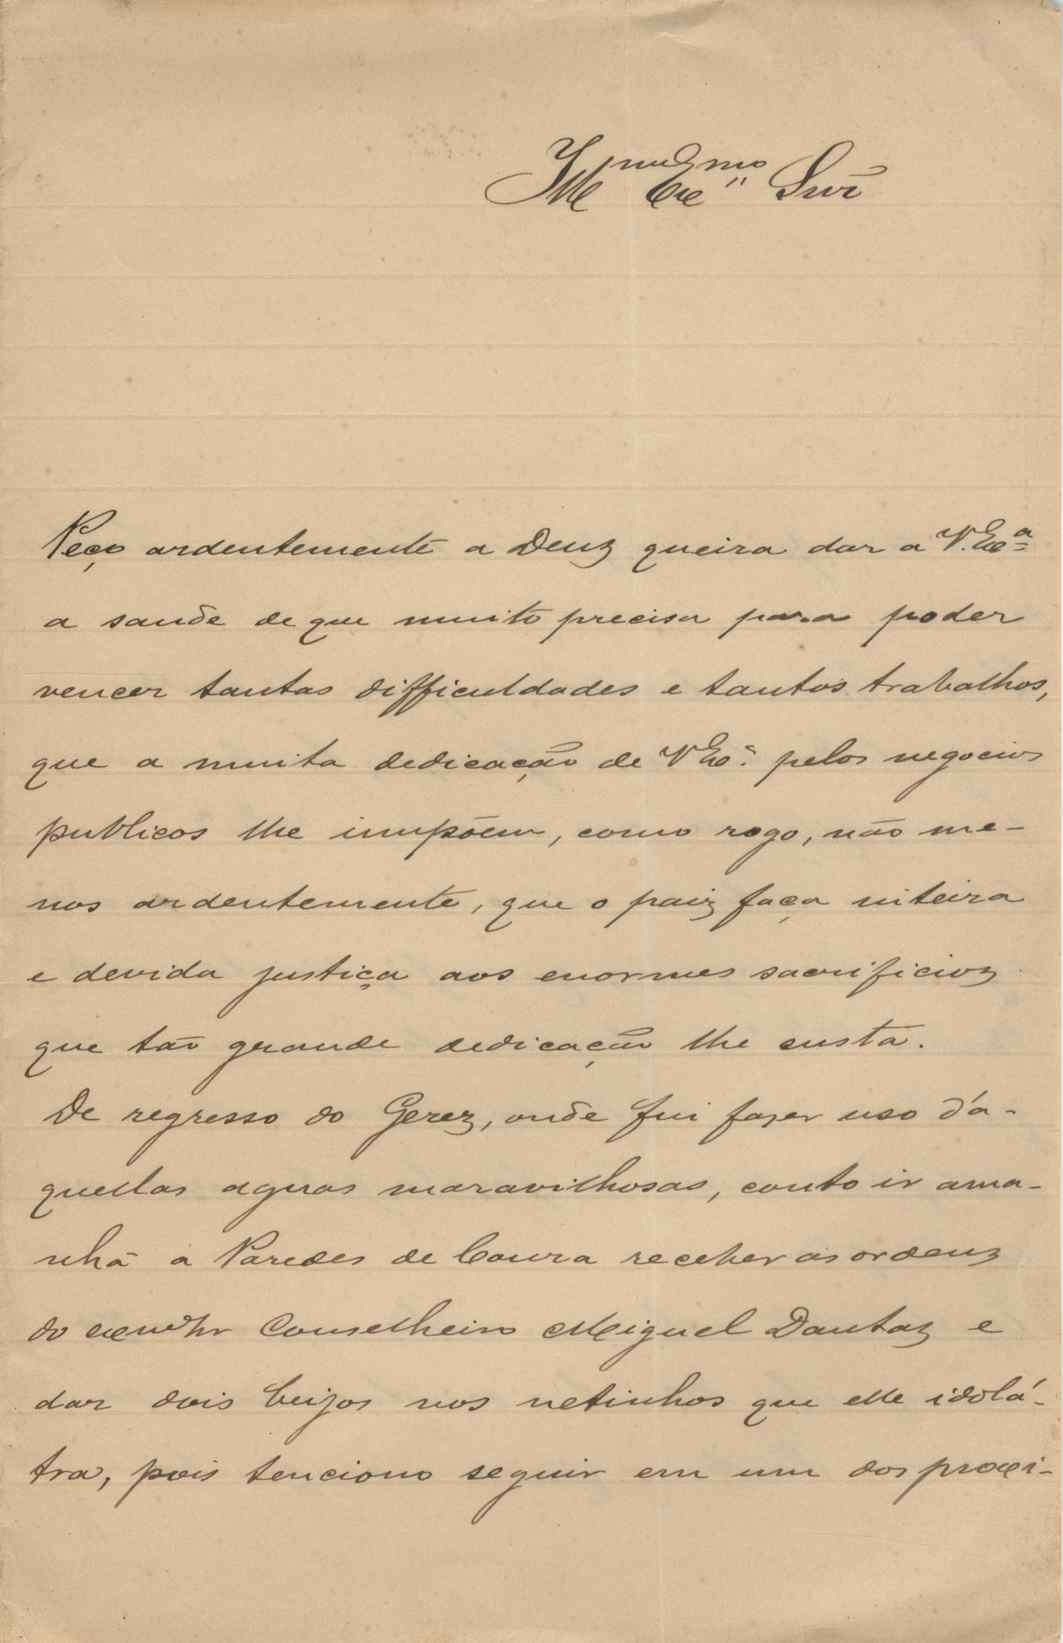 Ill.mo Ex.mo Snr
Peço ardentemente a Deuz queira dar a V. Ex.ª
a saude de que muito precisa para poder
vencer tantas difficuldades e tantos trabalhos,
que a muita dedicação de V Ex.ª pelos negocios
publicos lhe impõem, como rogo, não me-
nos ardentemente, que o paiz faça inteira
e devida justiça aos enormes sacrificioz
que tão grande dedicação lhe custa.
De regresso do Gerez, onde fui fazer uso d'a-
quellas aguas maravilhosas, conto ir ama-
nhã a Paredes de Coura receber as ordenz
do exmo Snr Conselheiro Miguel Dantaz e
dar dois beijos nos netinhos que elle idolá-
tra, pois tenciono seguir em um dos proxi-